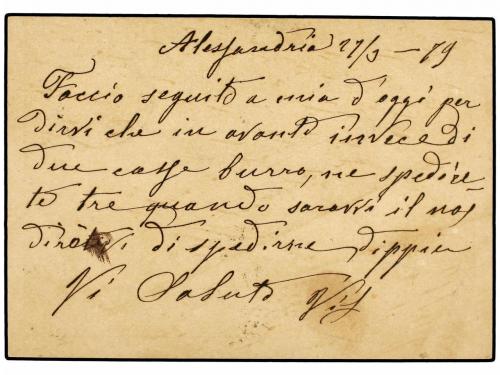 Alessandria 27/3 - 79
Faccio seguito a mia d'oggi per
dirvi che in avanti invece di
due casse burro, ne spedire=
te tre quando saravvi il
di spedirne dippiu
Vi Saluto